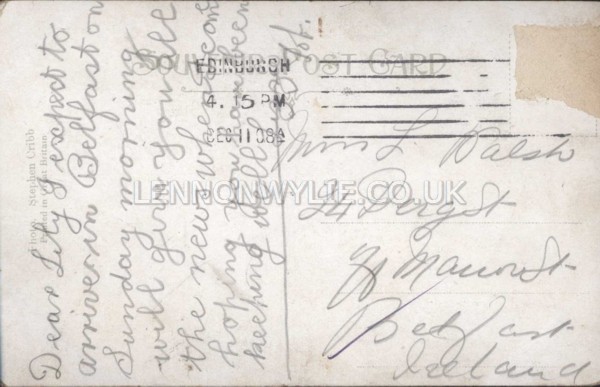 SOUVENIR POST CARD
EDINBURGH
4.15 PM
DEC 11 08
Photo. Stephen Cribb
Printed in Great Britain
LENNONWYLIE.CO.UK
Dear Lily I expect to
arrive in Belfast on
Sunday morning
will give you all
the news when I come
hoping you have been
keeping well
Miss L Walsh
24 Perry St
off Manor St
Belfast
Ireland